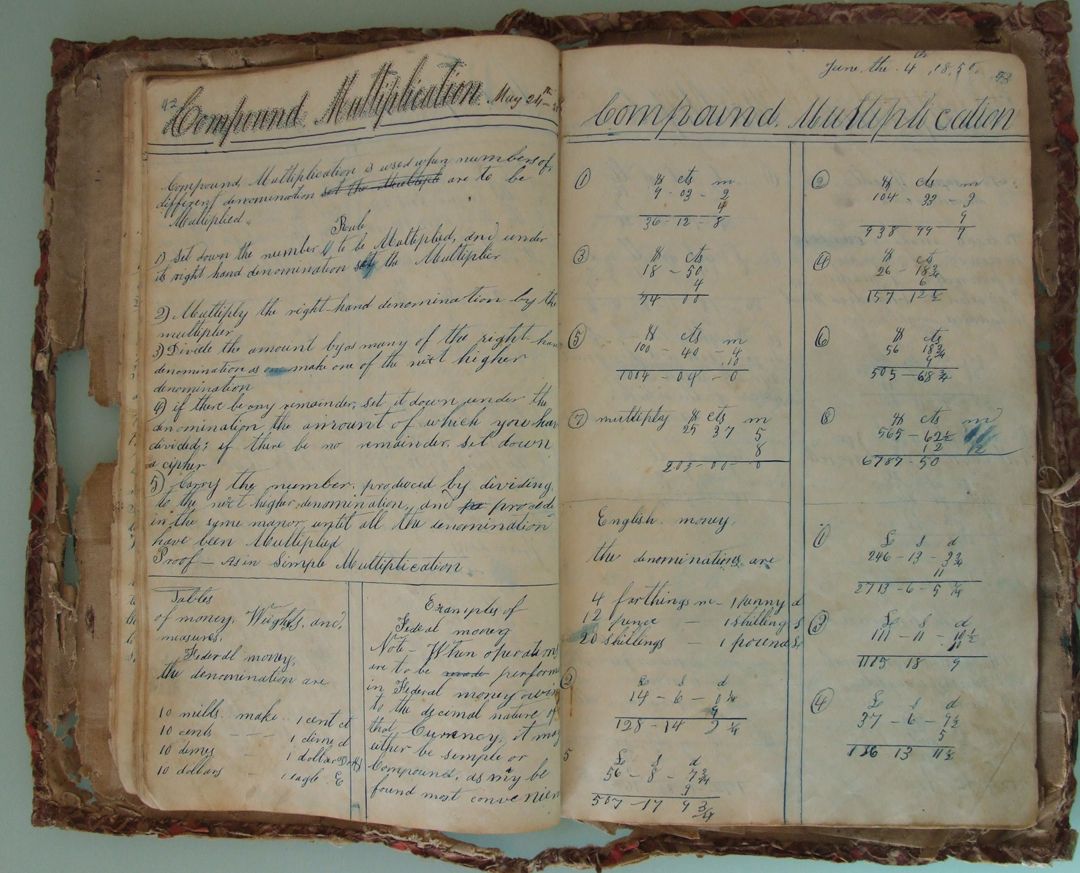 92
Compound Multiplication May 24th
Compound Multiplication is used when numbers of
different denomination are to be
Multiplied.
Rule
1) Set down the number to be Multiplied, and under
its right hand denomination set the Multiplier
2) Multiply the right-hand denomination by the
multiplier
3) Divide the amount by as many of the right-hand
denomination as make one of the next higher
denomination
4) if there be any remainder, set it down under the
denomination the amount of which you have
divided; if there be no remainder, set down
a cipher
5) Carry the number, produced by dividing
to the next higher denomination, and proceed
in the same manor, until all the denomination
have been Multiplied
Proof — As in Simple Multiplication
Tables
of money, Weights, and,
measures,
Federal money,
the denomination are
10 mills make 1 cent ct
10 cents — 1 dime d
10 dimes — 1 dollar
10 dollars 1 eagle E
Examples of
Federal money
Note — When operations
are to be perform
in Federal money owing
to the decimal nature of
that Currency, it may
either be simple or
Compound, as may be
found most convenien
June the 4th 1850 93
Compound Multiplication
1
$ cts m
9 - 03 - 2
4
36 - 12 - 8
2
$ cts m
104 - 33 - 3
9
938 99 7
3
$ cts
18 - 50
4
74 00
4
$ cts
26 - 18¾
6
157 - 12½
5
$ cts m
100 - 40 - 4
10
1004 - 04 - 0
6
$ cts
56 18¾
9
505 - 68¾
7 multiply $ cts m
25 37 5
8
203 - 00 - 0
$ cts m
565 - 62½
12
6787 - 50
English money,
the denominations are
4 farthings m — 1 penny d
12 pence — 1 shilling s
20 shillings — 1 pound £
1
£ s d
246 - 13 - 3¾
11
2713 - 6 - 5¼
2
£ s d
14 - 6 -
9
128 - 14 9¼
3
£ s d
111 - 11 - 10½
10
1115 18 9
4
£ s d
37 - 6 - 9½
5
186 13 11½
5
£ s d
56 - 8 - 7¾
9
507 - 17 9¾